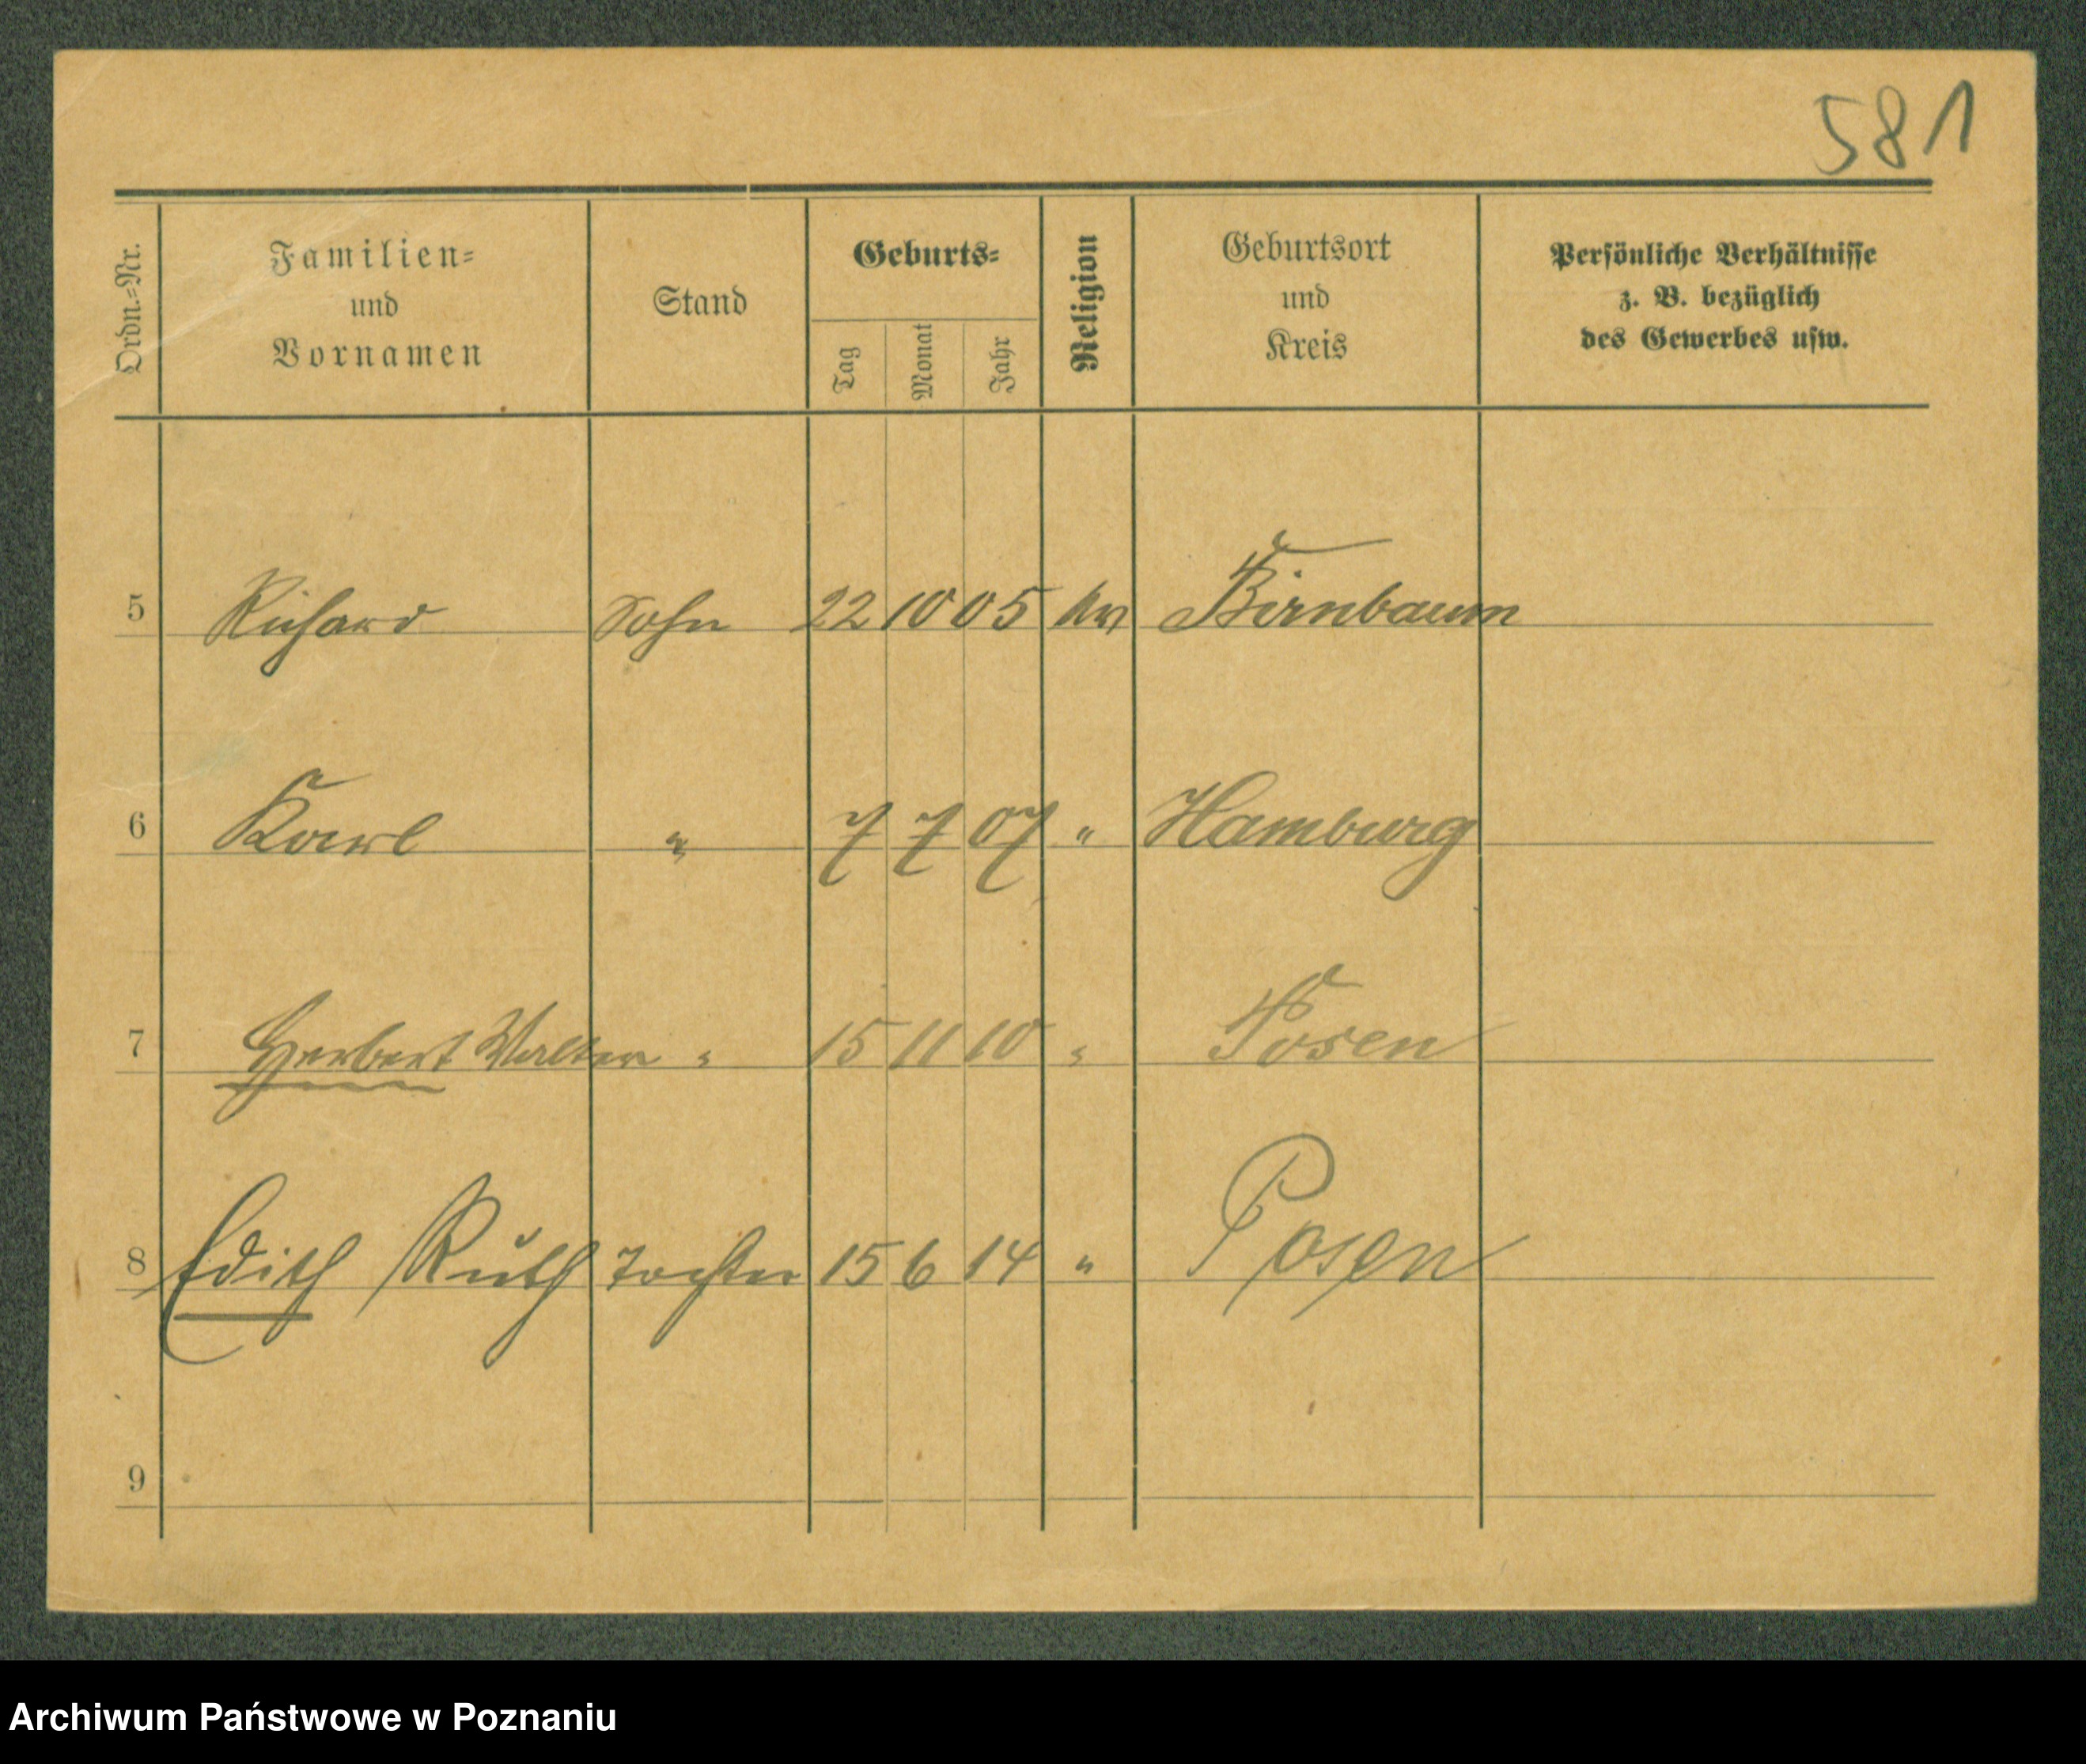 581
Ordn.=Nr.
Familien=
und
Vornamen
Stand
Geburts=
Tag
Monat
Jahr
Religion
Geburtsort
und
Kreis
Persönliche Verhältnisse
z. B. bezüglich
des Gewerbes usw.
5 Richard Sohn 22 10 05 Birnbaum
6 Karl " 7 7 07 " Hamburg
7 Herbert Walter " 15 11 10 " Posen
8 Edith Ruth Tochter 15 6 14 " Posen
9
Archiwum Państwowe w Poznaniu